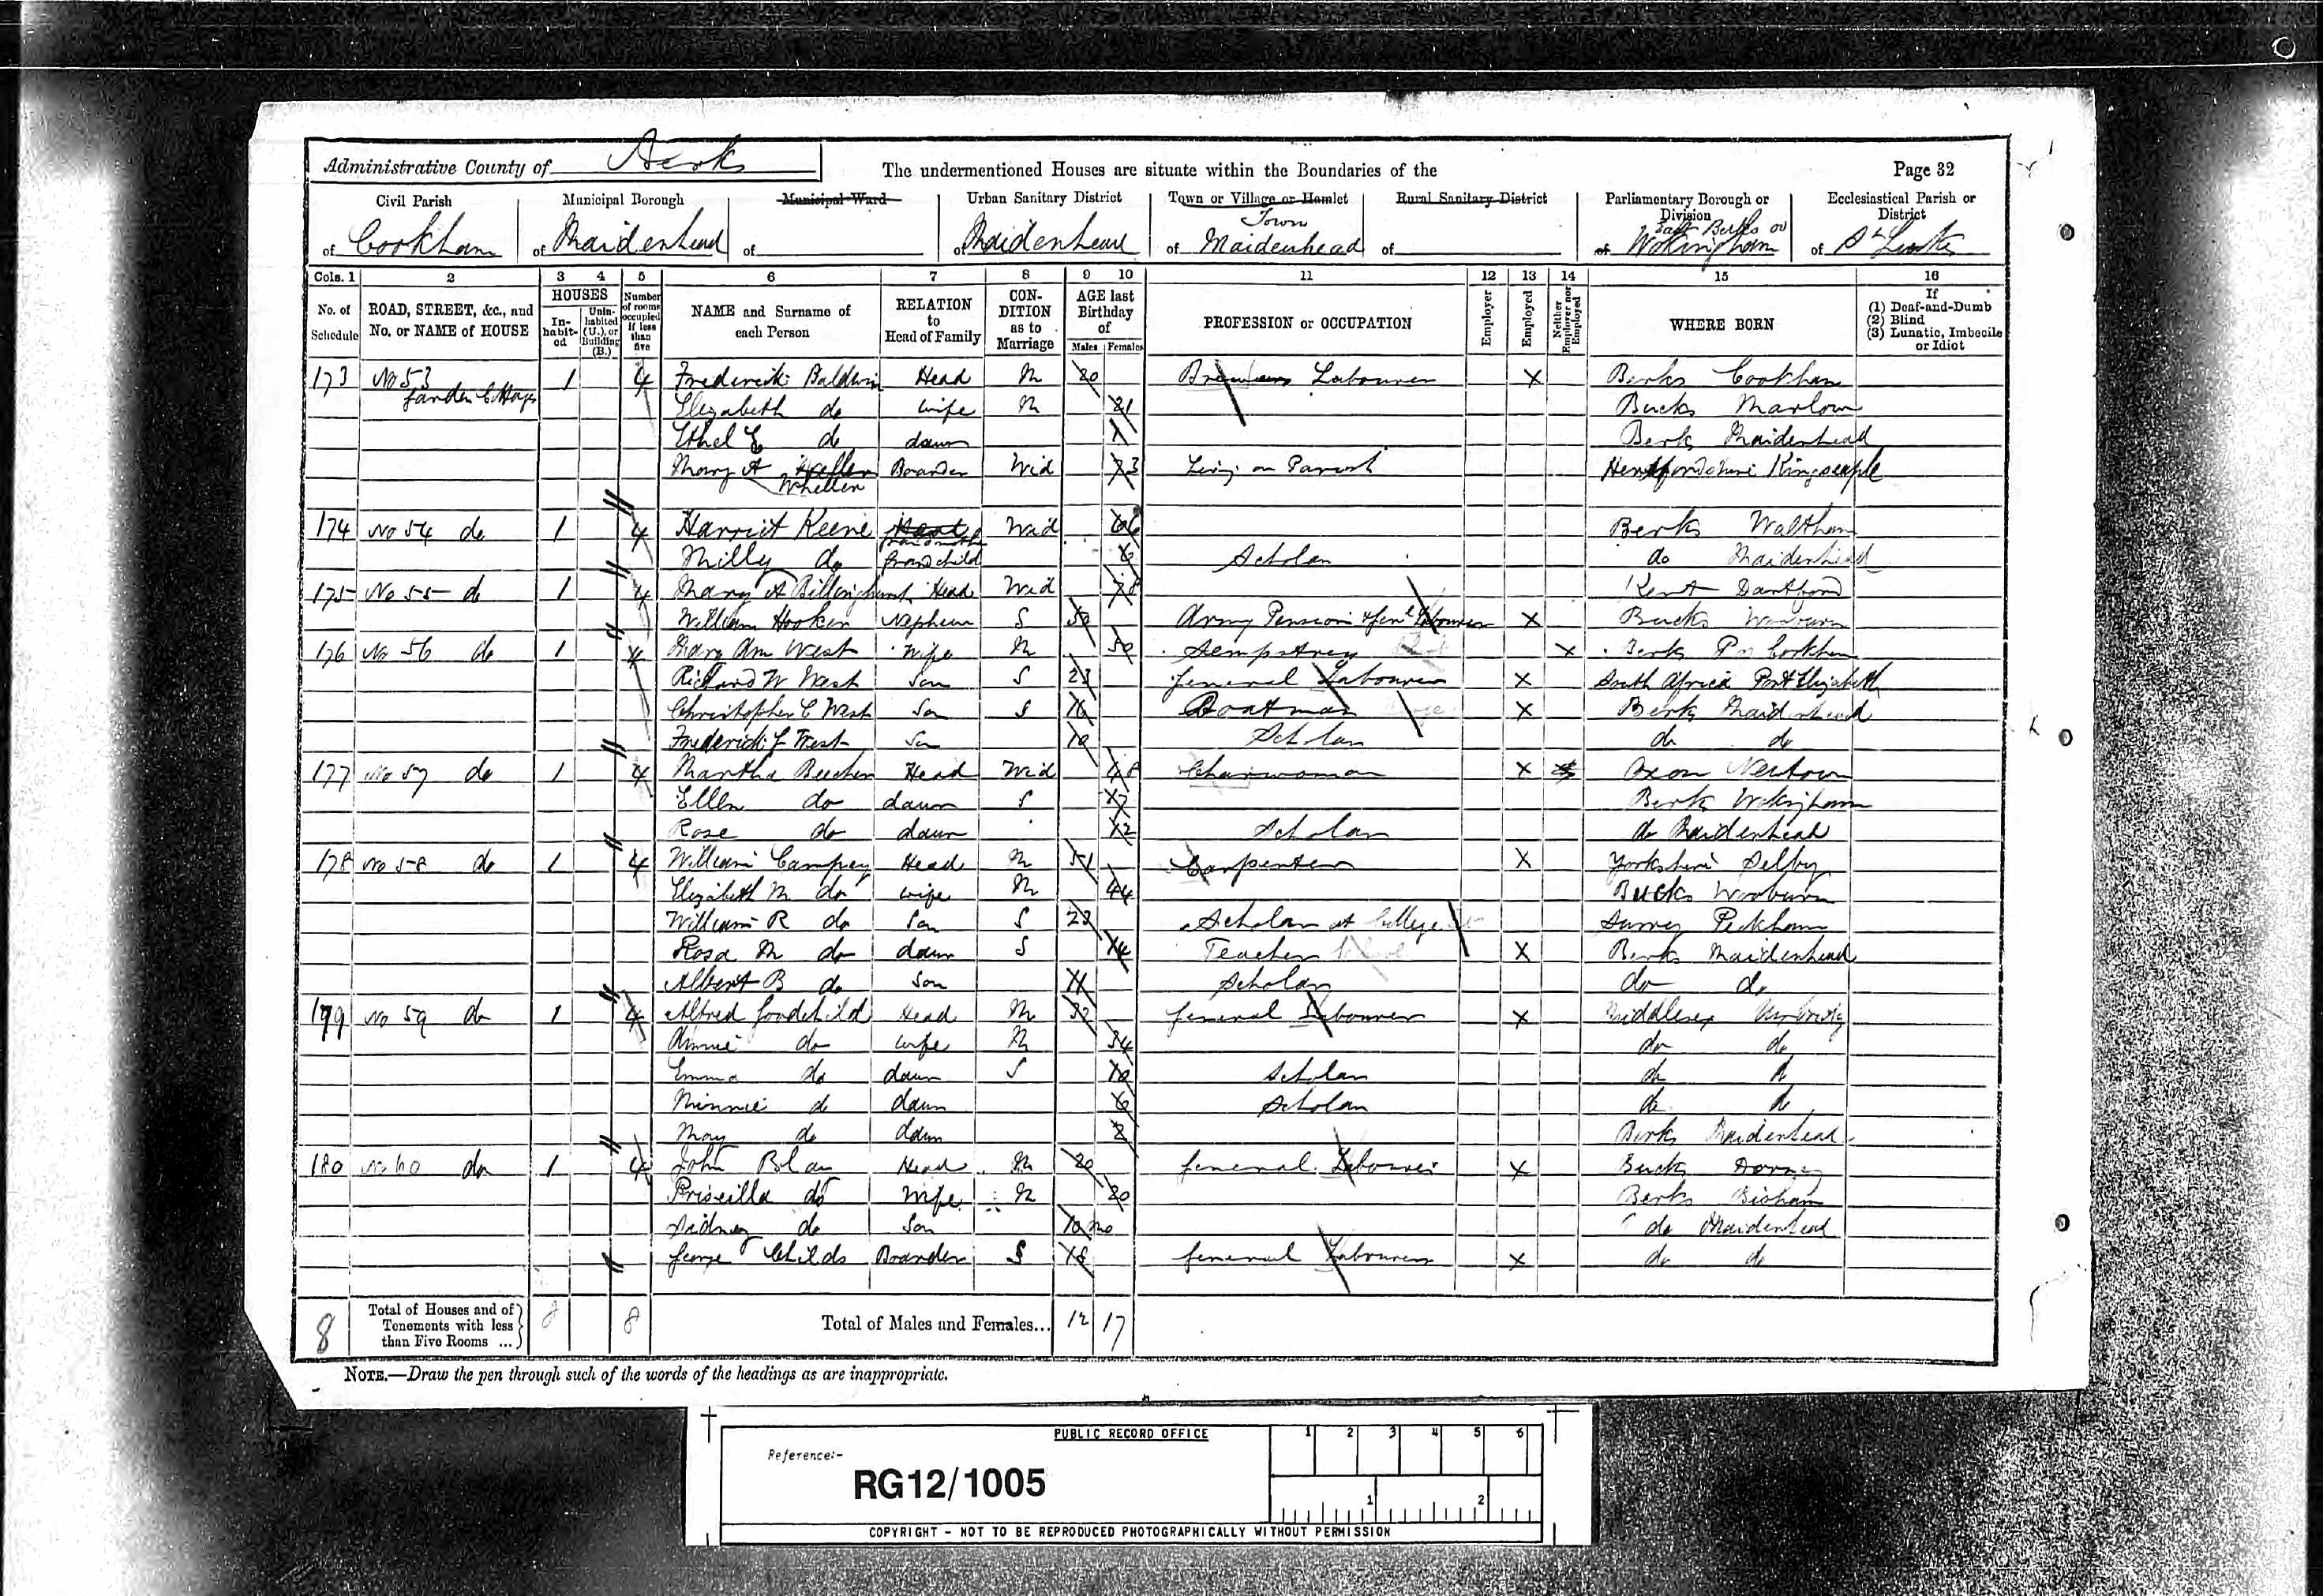 Administrative County of Berks
The undermentioned Houses are situate within the Boundaries of the
Page 32
Civil Parish
of Cookham
Municipal Borough
of Maidenhead
Municipal Ward
of
Urban Sanitary District
of Maidenhead
Town or Village or Hamlet
Town
of Maidenhead
Rural Sanitary District
of
Parliamentary Borough or
Division
East Berks or
of Wokingham
Ecclesiastical Parish or
District
of St Luke
Cols. 1 2 3 4 5 6 7 8 9 10 11 12 13 14 15 16
No. of
Schedule
ROAD, STREET, &c., and
No. or NAME of HOUSE
HOUSES
In-
habit-
ed
Unin-
habited
(U.), or
Building
(B.)
Number
of rooms
occupied
if less
than
five
NAME and Surname of
each Person
RELATION
to
Head of Family
CON-
DITION
as to
Marriage
AGE last
Birthday
of
Males Females
PROFESSION or OCCUPATION
Employer
Employed
Neither
Employer nor
Employed
WHERE BORN
If
(1) Deaf-and-Dumb
(2) Blind
(3) Lunatic, Imbecile
or Idiot
173 No 53 1 4 Frederick Baldwin Head M 20 Labourer X Berks Cookham
Garden Cottages
Elizabeth do wife M 21 Bucks Marlow
Ethel E do daur 1 Berks Maidenhead
Mary A Boarder Wid 73 Living on Parish
Whellen
174 No 54 do 1 4 Harriet Keene Head Wid 66 Berks Waltham
Grandmother
Milly do Grandchild 6 Scholar do Maidenhead
175 No 55 do 1 4 Mary A Billinghurst Head Wid 78 Kent Dartford
William Hooker Nephew S 50 Army Pension & Genl Labourer X Bucks Wooburn
176 No 56 do 1 4 Mary Ann West Wife M 50 Sempstress X Berks Cookham
Richard W West Son S 23 General Labourer X South Africa Port Elizabeth
Christopher C West Son S 16 Boatman X Berks Maidenhead
Frederick J West Son 10 Scholar do do
177 No 57 do 1 4 Martha Beecher Head Wid 48 Charwoman X Oxon
Ellen do daur S 17 Berks Wokingham
Rose do daur 12 Scholar do Maidenhead
178 No 58 do 1 4 William Campey Head M 51 Carpenter X Yorkshire Selby
Elizabeth M do wife M 44 Bucks Wooburn
William R do Son S 22 Scholar at College Surrey Peckham
Rosa M do daur S 14 Teacher X Berks Maidenhead
Albert B do Son 11 Scholar do do
179 No 59 do 1 4 Alfred Goodchild Head M 32 General Labourer X Middlesex
Annie do wife M 34 do do
Emma do daur S 10 Scholar do do
Minnie do daur 6 Scholar do do
May do daur 2 Berks Maidenhead
180 No 60 do 1 4 John Head M 20 General Labourer X Bucks Dorney
Priscilla do Wife M 20 Berks Bisham
Sidney do Son 10 mo do Maidenhead
George Childs Boarder S 18 General Labourer X do do
8
Total of Houses and of
Tenements with less
than Five Rooms ...
8 8
Total of Males and Females... 12 17
NOTE.—Draw the pen through such of the words of the headings as are inappropriate.
PUBLIC RECORD OFFICE
1 2 3 4 5 6
Reference:-
RG12/1005
1 2
COPYRIGHT - NOT TO BE REPRODUCED PHOTOGRAPHICALLY WITHOUT PERMISSION